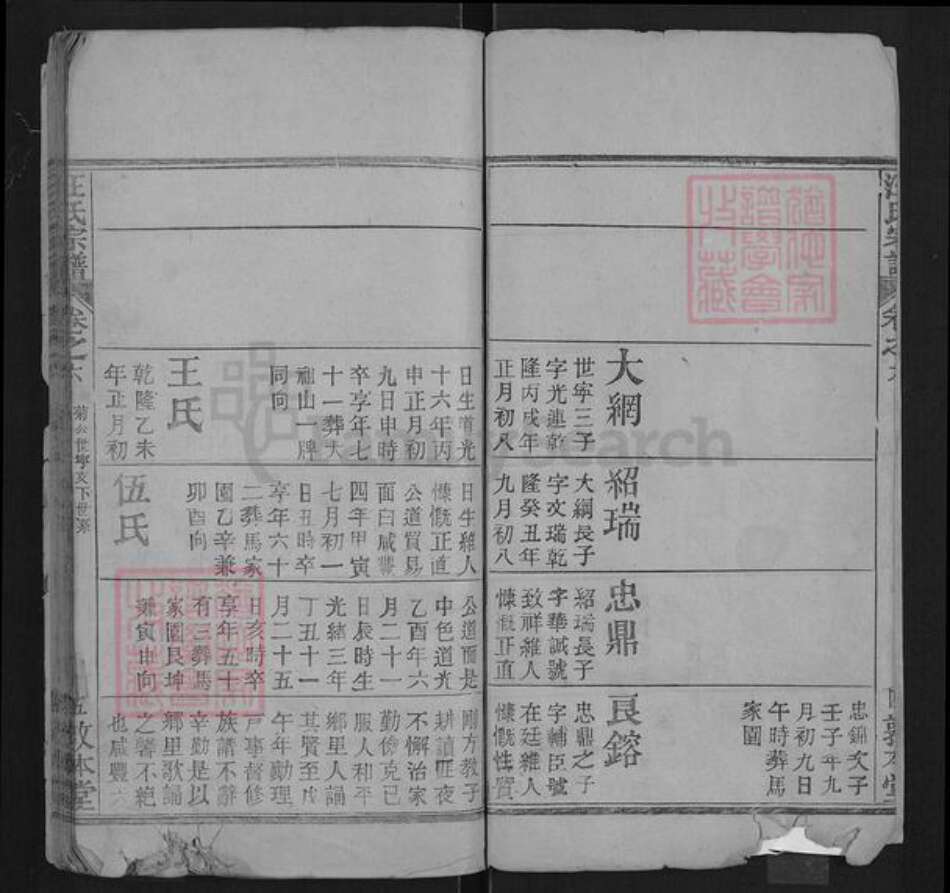 汪氏宗譜
卷之六
敦本堂
大綱
世寧三子
字光連乾
隆丙戌年
正月初八
紹瑞
大綱長子
字文瑞乾
隆癸丑年
九月初八
忠鼎
紹瑞長子
字華誠號
致祥維人
慷慨正直
忠錦文子
壬子年九
月初九日
午時葬馬
家園
良鎔
忠鼎之子
字輔臣號
在廷維人
慷慨性質
日生道光
十六年丙
申正月初
九日申時
卒享年七
十一葬大
山一牌
同向
王氏
乾隆乙未
年正月初
日生維人
慷慨正直
公道貿易
面白咸豐
四年甲寅
七月初一
日丑時卒
享年六十
二葬馬家
園乙辛兼
卯酉向
伍氏
公道面是
中色道光
乙酉年六
月二十一
日辰時生
光緒三年
丁丑十一
月二十五
日亥時卒
享年五十
有三葬馬
家園艮坤
兼寅申向
剛方教子
耕讀匪夜
不懈治家
勤儉克已
服人和平
鄉里人誦
其賢至戊
午年勤理
戶事督修
族譜不辭
辛勤是以
鄉里歌誦
之聲不絕
也咸豐六
汪氏宗譜
卷之六
菊公世寧支下世系
五
敦本堂